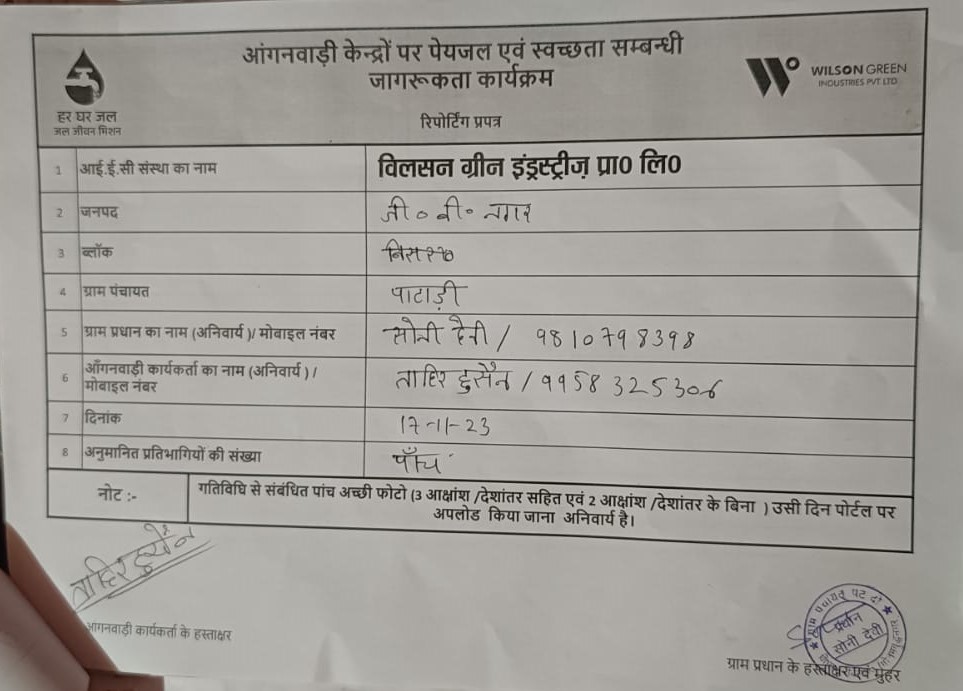 आंगनवाड़ी केन्द्रों पर पेयजल एवं स्वच्छता सम्बन्धी
जागरूकता कार्यक्रम
रिपोर्टिंग प्रपत्र
हर घर जल
जल जीवन मिशन
WILSON GREEN
INDUSTRIES PVT LTD
1 आई.ई.सी संस्था का नाम विलसन ग्रीन इंड्रस्ट्रीज़ प्रा0 लि0
2 जनपद जी० बी० नगर
3 ब्लॉक
4 ग्राम पंचायत पाटाड़ी
5 ग्राम प्रधान का नाम (अनिवार्य)/ मोबाइल नंबर सोनी देवी / 9810798398
6 आँगनवाड़ी कार्यकर्ता का नाम (अनिवार्य ) /
मोबाइल नंबर ताहिर हुसैन / 9958325306
7 दिनांक 17-11-23
8 अनुमानित प्रतिभागियों की संख्या पाँच
नोट :- गतिविधि से संबंधित पांच अच्छी फोटो (3 आक्षांश /देशांतर सहित एवं 2 आक्षांश /देशांतर के बिना ) उसी दिन पोर्टल पर
अपलोड किया जाना अनिवार्य है।
ताहिर हुसैन
आंगनवाड़ी कार्यकर्ता के हस्ताक्षर
ग्राम पंचायत
प्रधान
सोनी देवी
ग्राम प्रधान के हस्ताक्षर एवं मुहर